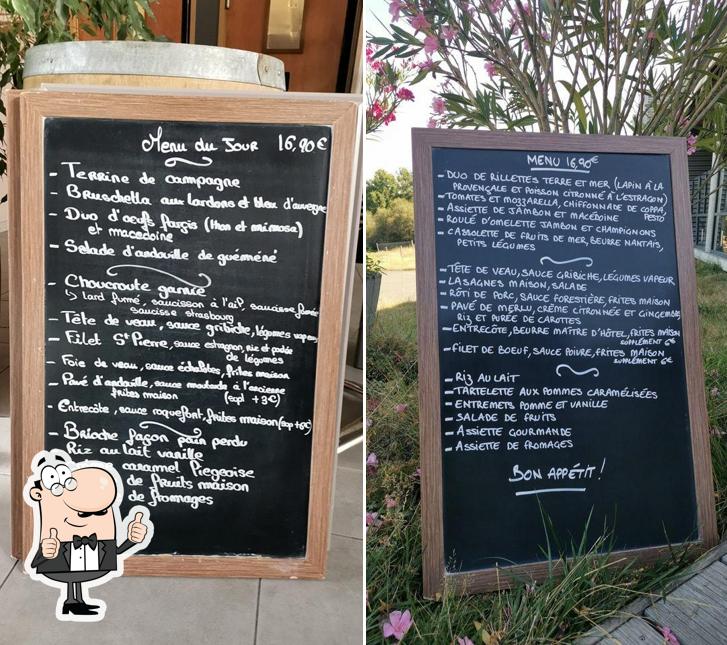 Menu du Jour 16,90€
- Terrine de campagne
- Bruschetta aux lardons et bleu d'auvergne
- Duo d'œufs farçis (thon et mimosa)
et macedoine
- Salade d'andouille de guémené
- Choucroute garnie
↳ lard fumé, saucisson à l'ail, saucisse fumée
saucisse strasbourg
- Tête de veau, sauce gribiche, légumes vapeur
- Filet St Pierre, sauce estragon, riz et poêlée
de légumes
- Foie de veau, sauce échalotes, frites maison
- Pavé d'andouille, sauce moutarde à l'ancienne
frites maison (supl +3€)
- Entrecôte, sauce roquefort, frites maison (sup +6€)
- Brioche façon pain perdu
Riz au lait vanille
caramel Piegeoise
de fruits maison
de fromages
MENU 16,90€
- DUO DE RILLETTES TERRE ET MER (LAPIN À LA
PROVENÇALE ET POISSON CITRONNÉ À L'ESTRAGON)
- TOMATES ET MOZZARELLA, CHIFFONNADE DE COPPA,
PESTO
- ASSIETTE DE JAMBON ET MACÉDOINE
- ROULÉ D'OMELETTE JAMBON ET CHAMPIGNONS
- CASSOLETTE DE FRUITS DE MER, BEURRE NANTAIS,
PETITS LÉGUMES
- TÊTE DE VEAU, SAUCE GRIBICHE, LÉGUMES VAPEUR
- LASAGNES MAISON, SALADE
- RÔTI DE PORC, SAUCE FORESTIÈRE, FRITES MAISON
- PAVÉ DE MERLU, CRÈME CITRONNÉE ET GINGEMBRE,
RIZ ET PURÉE DE CAROTTES
- ENTRECÔTE, BEURRE MAÎTRE D'HÔTEL, FRITES MAISON
SUPPLÉMENT 6€
- FILET DE BOEUF, SAUCE POIVRE, FRITES MAISON
SUPPLÉMENT 6€
- RIZ AU LAIT
- TARTELETTE AUX POMMES CARAMÉLISÉES
- ENTREMETS POMME ET VANILLE
- SALADE DE FRUITS
- ASSIETTE GOURMANDE
- ASSIETTE DE FROMAGES
BON APPÉTIT !